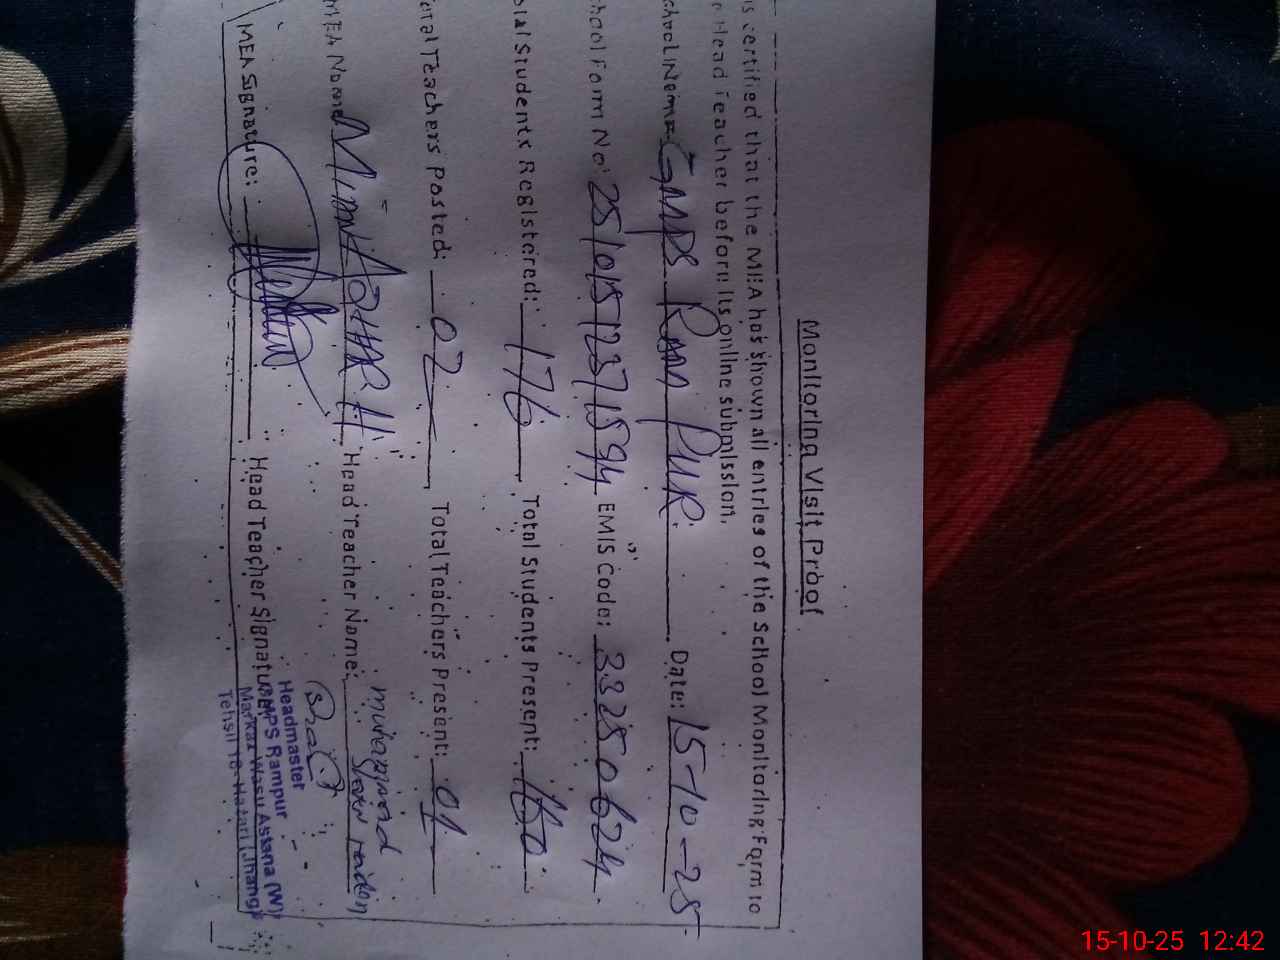 Monitoring Visit Proof
is certified that the MEA has shown all entries of the School Monitoring Form to
Head Teacher before its online submission.
School Name: GMPS Ram PUR Date: 15-10-25
School Form No: 25101512371594 EMIS Code: 33250624
Total Students Registered: 176 Total Students Present: 160
Total Teachers posted: 02 Total Teachers Present: 01
MEA Name: Head Teacher Name: muhammad
MEA Signature: Head Teacher Signature:
Headmaster
GMPS Rampur
Markaz Wasu Astana (W)
Tehsil 18-Hazari (Jhang)
15-10-25 12:42